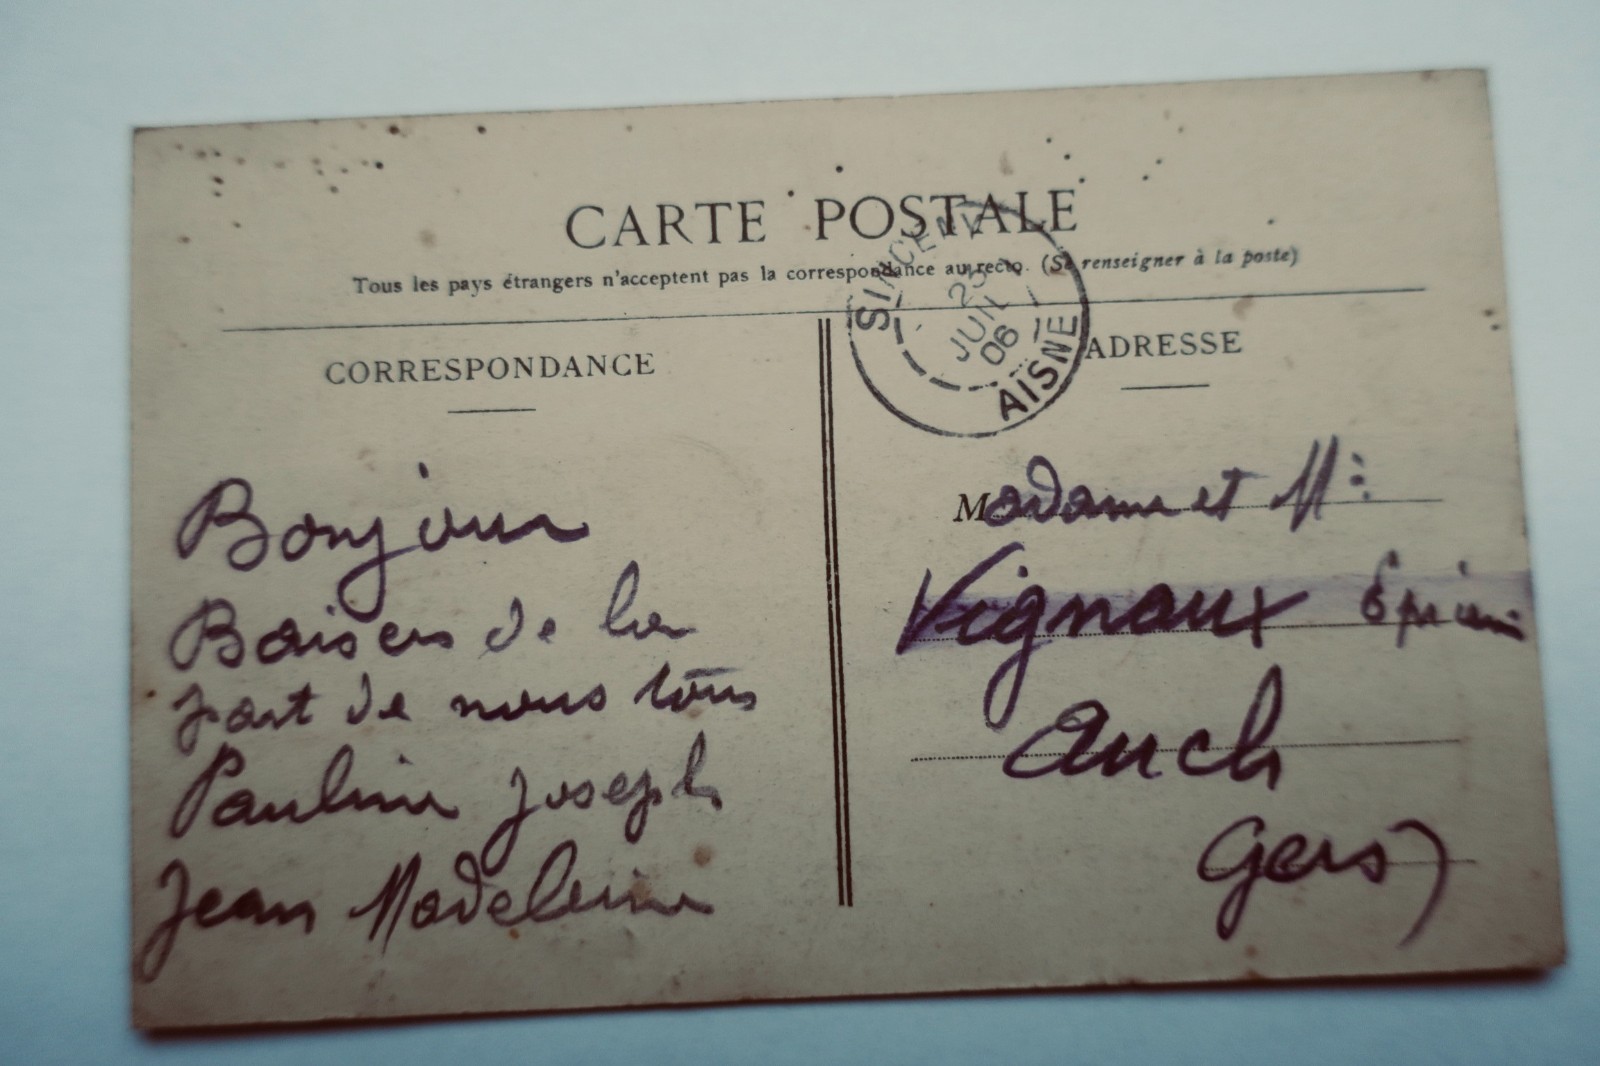 CARTE POSTALE
Tous les pays étrangers n'acceptent pas la correspondance au recto. (Se renseigner à la poste)
SINCENY
25
JUIL
06
AISNE
CORRESPONDANCE
Bonjour
Baisers de la
part de nous tous
Pauline Joseph
Jean Madeleine
ADRESSE
Madame et Mr
Vignaux Epicier
Auch
Gers)